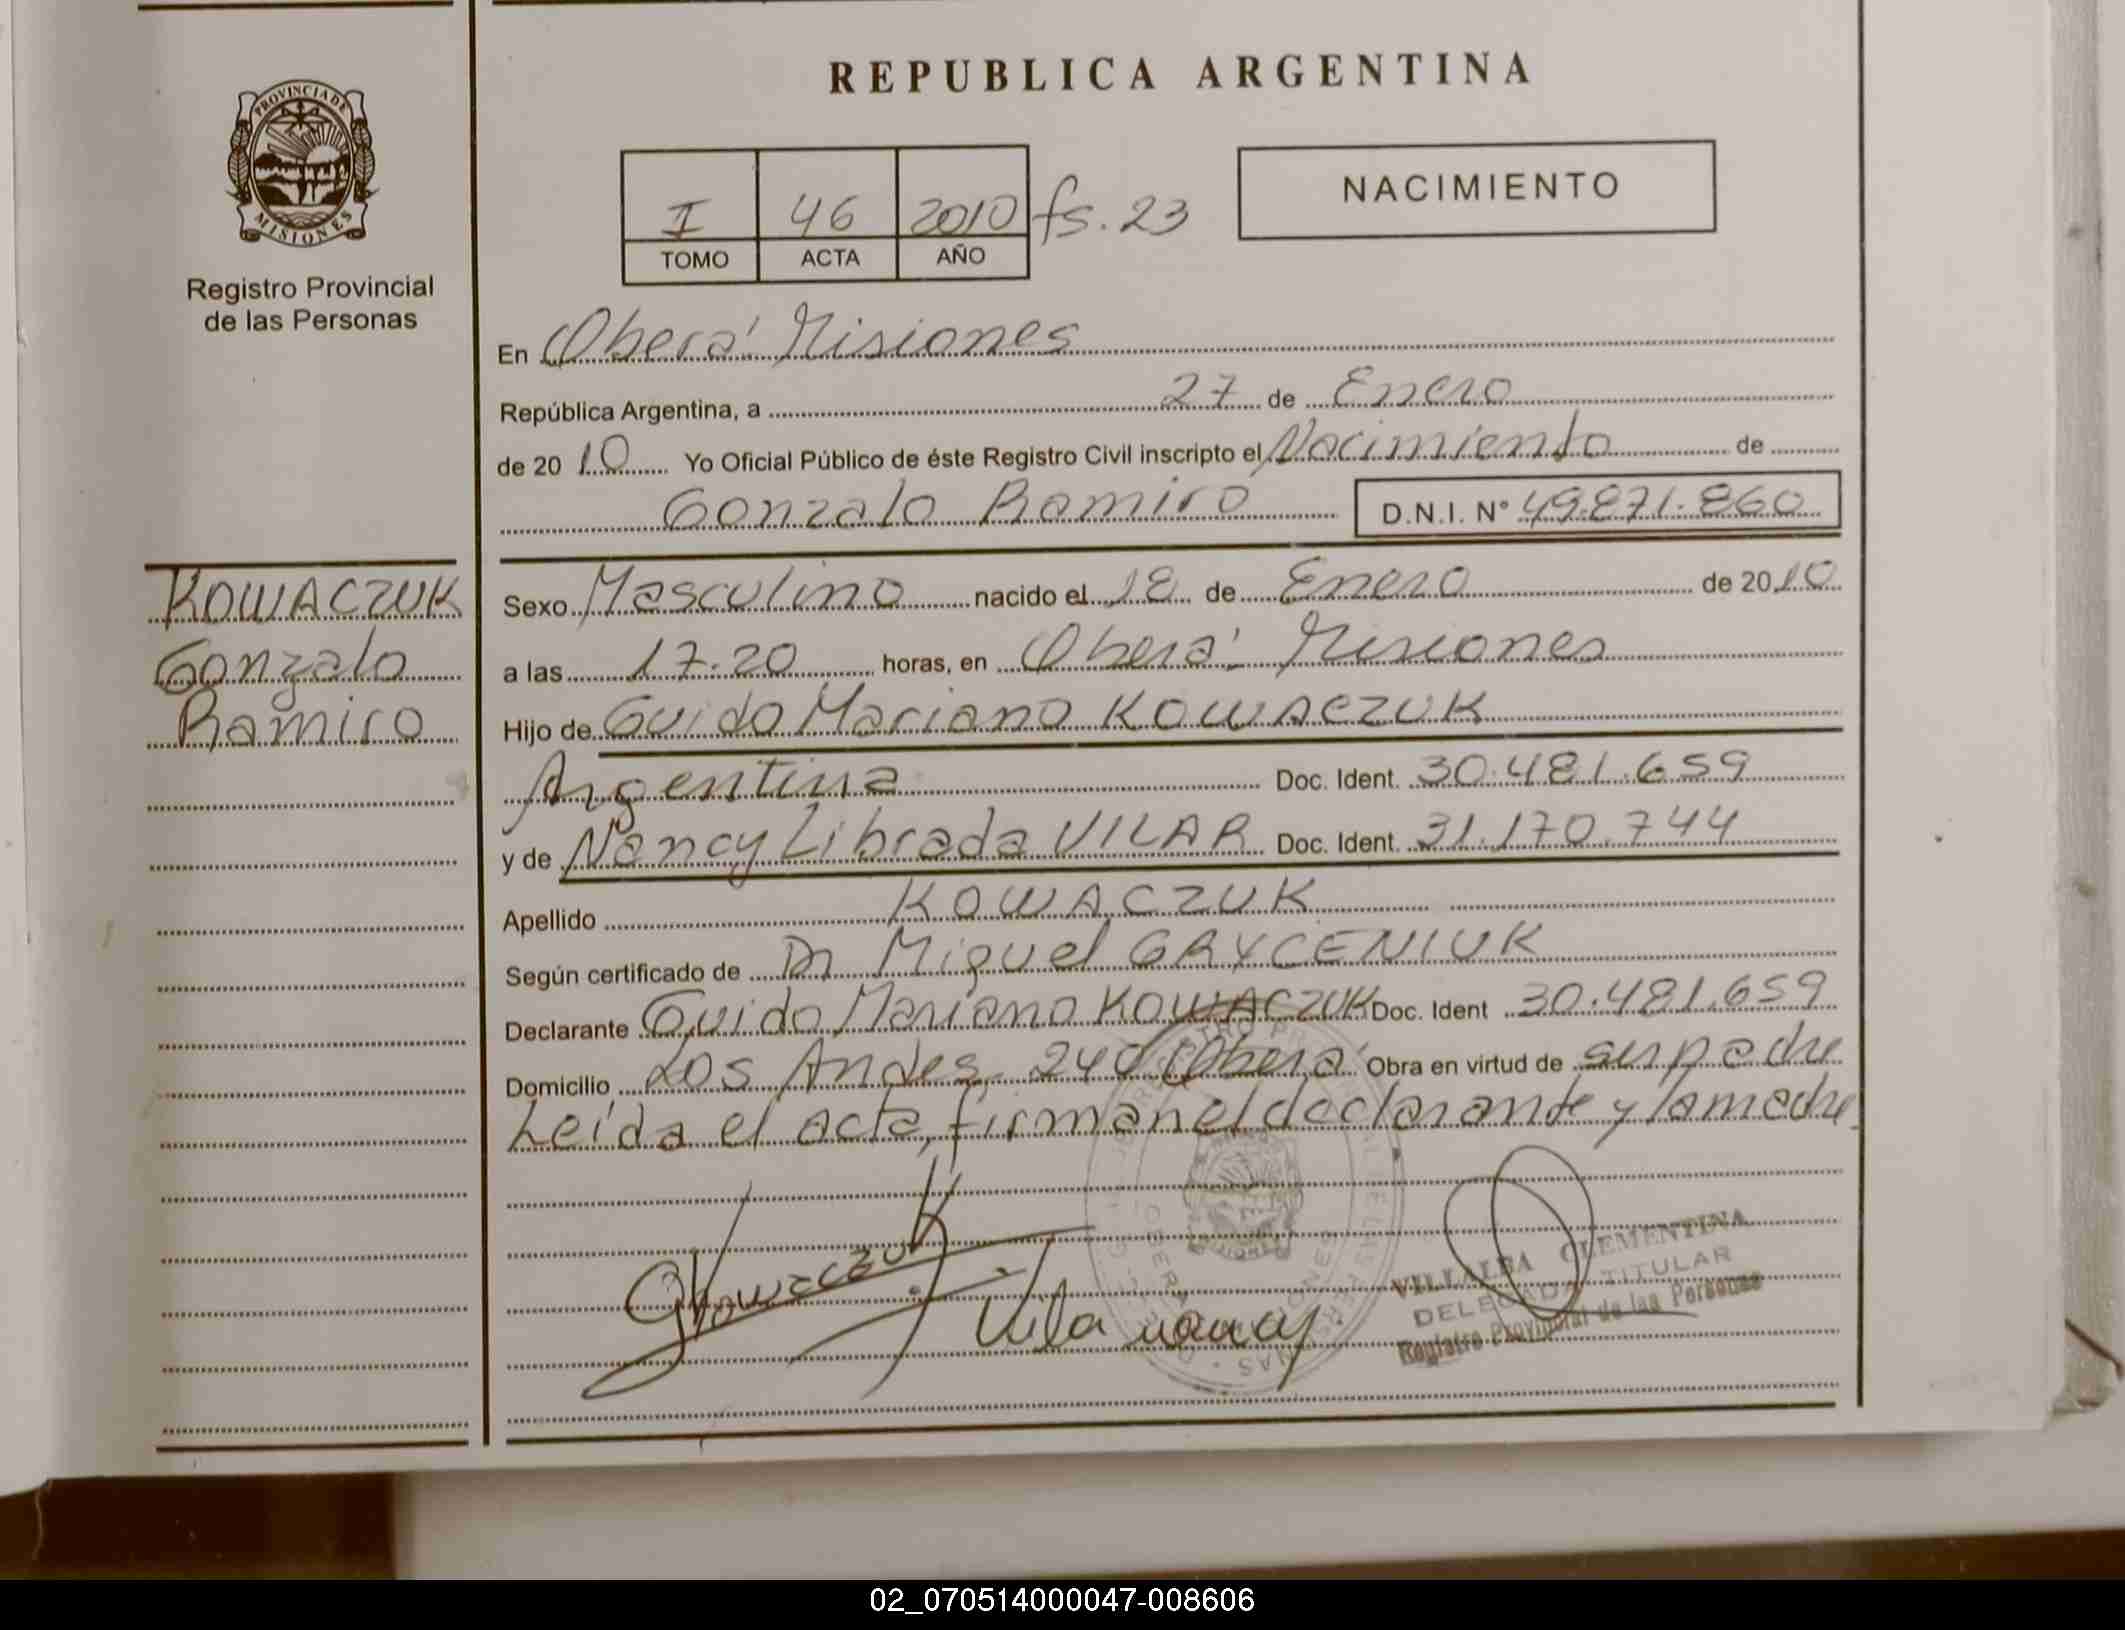 REPUBLICA ARGENTINA
PROVINCIA DE
MISIONES
Registro Provincial
de las Personas
I 46 2010 fs. 23
TOMO ACTA AÑO
NACIMIENTO
En Oberá Misiones
República Argentina, a 27 de Enero
de 20 10 Yo Oficial Público de éste Registro Civil inscripto el Nacimiento de
Gonzalo Ramiro D.N.I. N° 49.871.860
KOWACZUK
Gonzalo
Ramiro
Sexo Masculino nacido el 18 de Enero de 2010
a las 17.20 horas, en Oberá Misiones
Hijo de Guido Mariano KOWACZUK
Argentina Doc. Ident. 30.481.659
y de Nancy Librada VILAR Doc. Ident. 31.170.744
Apellido KOWACZUK
Según certificado de Dr Miguel GRYCENIUK
Declarante Guido Mariano KOWACZUK Doc. Ident 30.481.659
Domicilio Los Andes 240 Oberá Obra en virtud de ser padre
Leída el acta, firman el declarante y la madre
GKowaczuk
Vila nancy
VILLALBA CLEMENTINA
DELEGADA TITULAR
Registro Provincial de las Personas
02_070514000047-008606